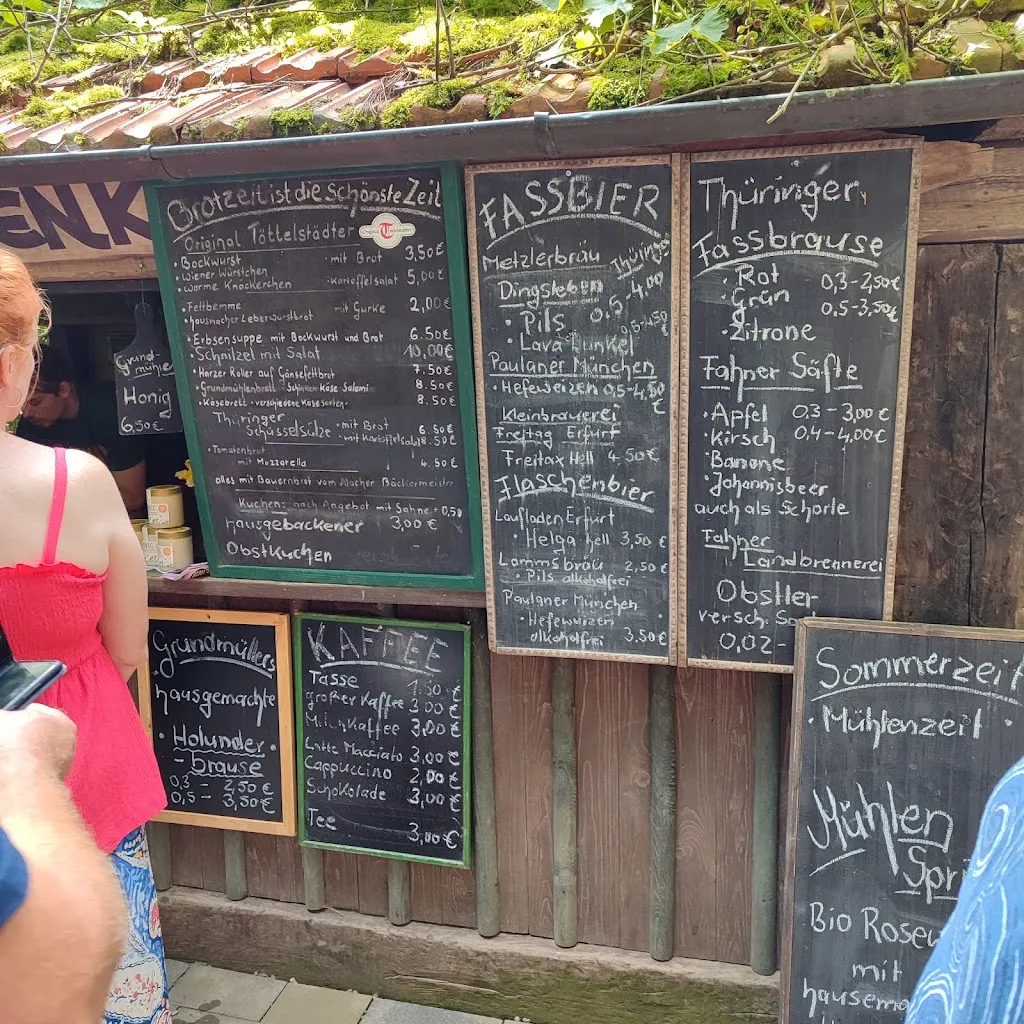 ENK
Grund-
mühlen
Honig
6,50€
Brotzeit ist die schönste Zeit
Original Töttelstädter
• Bockwurst - mit Brot 3,50€
• Wiener Würstchen
• warme Knackerchen - Kartoffelsalat 5,00€
• Fettbemme - mit Gurke 2,00€
• hausmacher Leberwurstbrot
• Erbsensuppe mit Bockwurst und Brot 6.50€
• Schnitzel mit Salat 10,00€
• Harzer Roller auf Gänsefettbrot 7.50€
• Grundmühlenbrett - Schinken Käse Salami 8.50€
• Käsebrett - verschiedene Käsesorten 8.50€
Thüringer - mit Brot 6.50€
Schüsselsülze - mit Kartoffelsalat 8.50€
• Tomatenbrot
mit Mozzarella 4.50€
alles mit Bauernbrot vom Bäckermeister
Kuchen: nach Angebot mit Sahne + 0,50
hausgebackener 3,00€
Obstkuchen
FASSBIER
Metzlerbräu Thüringen
Dingsleben
• Pils 0,5 - 4,00
• Lava Dunkel 0,5-4,50€
Paulaner München
• Hefeweizen 0,5-4,50€
Kleinbrauerei
Freitag Erfurt
Freitax Hell 4.50€
Flaschenbier
Laufladen Erfurt
• Helga hell 3,50€
Lammsbräu 2,50€
• Pils alkoholfrei
Paulaner München
• Hefeweizen
alkoholfrei 3,50€
Thüringer
Fassbrause
• Rot 0,3-2,50€
• Grün 0,5-3,50€
• Zitrone
Fahner Säfte
• Apfel 0.3 - 3,00€
• Kirsch 0,4-4,00€
• Banane
• Johannisbeer
auch als Schorle
Fahner
Landbrennerei
Obstler
versch.
0,02-
Grundmüllers
hausgemachte
• Holunder •
- brause
0,3 - 2,50€
0,5 - 3,50€
KAFFEE
Tasse 1.50€
großer Kaffee 3.00€
Milchkaffee 3,00€
Latte Macciato 3,00€
Cappuccino 2,00€
Schokolade 3,00€
Tee 3,00€
Sommerzeit
• Mühlenzeit •
Mühlen
Bio
mit